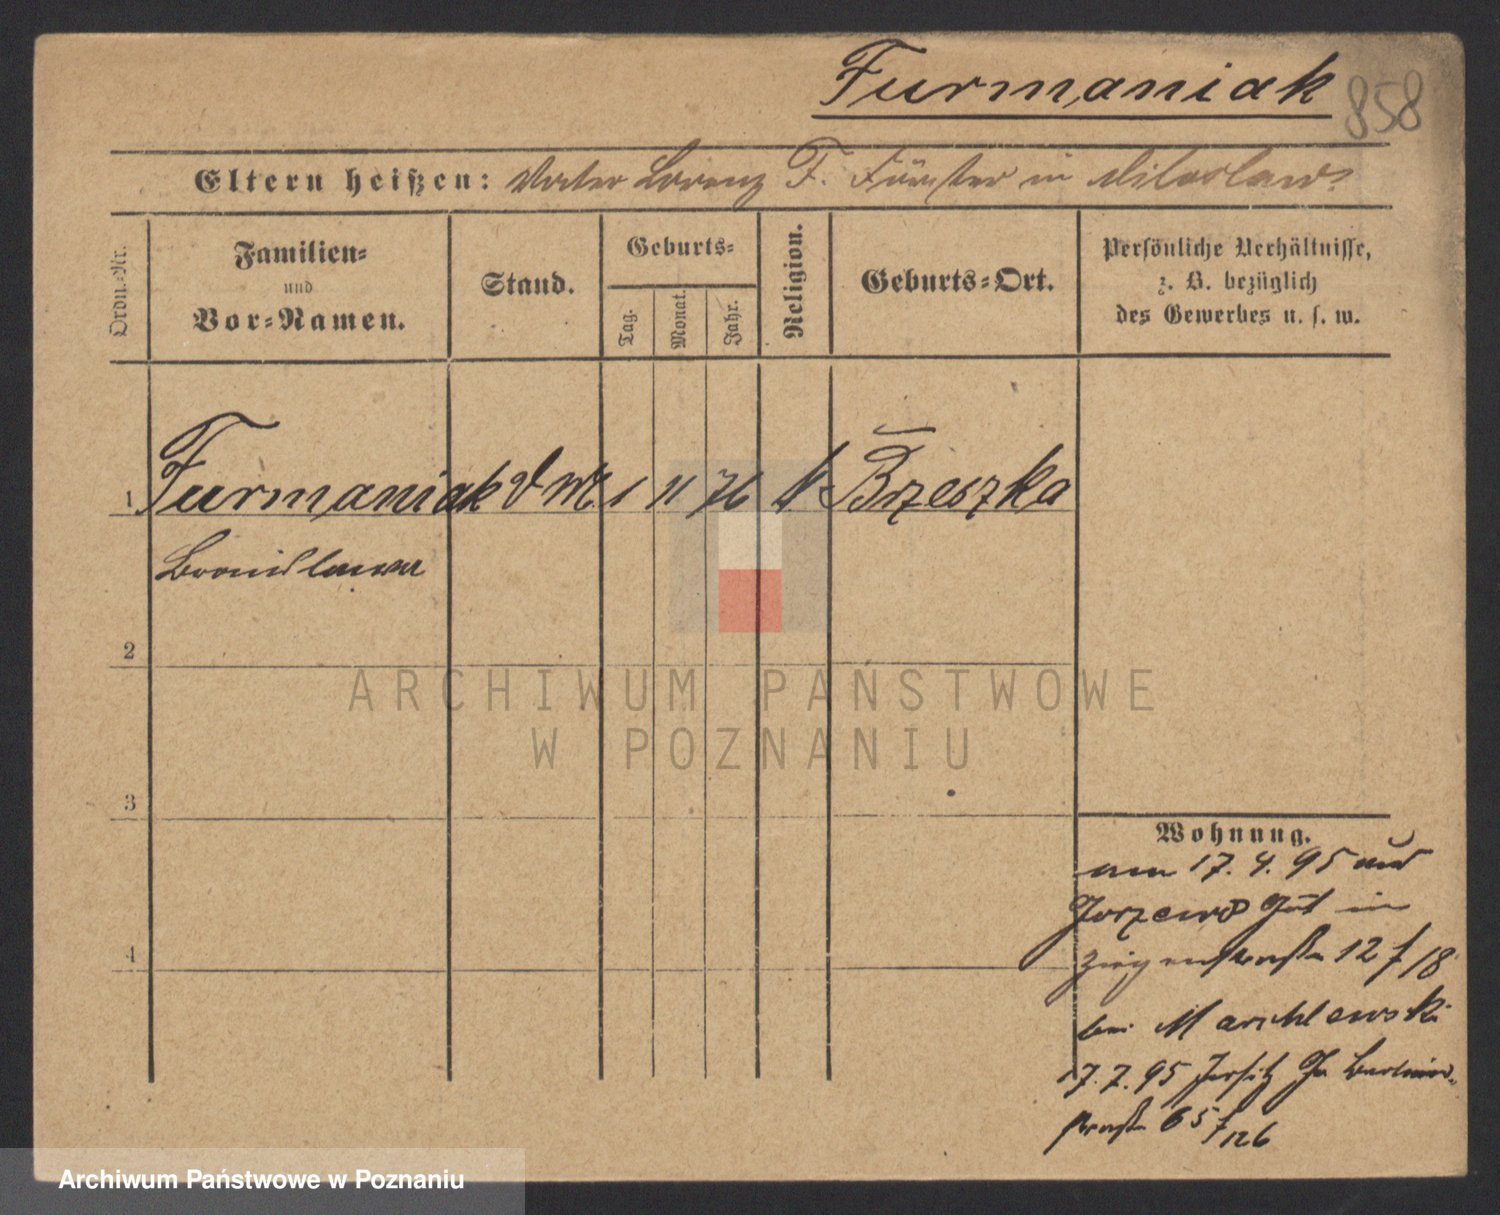 Furmaniak 858
Eltern heißen: Vater Lorenz F. Förster in Miloslaw
Ordn.-Nr.
Familien-
und
Vor-Namen.
Stand.
Geburts-
Tag.
Monat.
Jahr.
Religion.
Geburts-Ort.
Persönliche Verhältnisse,
z. B. bezüglich
des Gewerbes u. s. w.
1 Furmaniak 1 11 76 k Brzeszka
Bronislawa
2
3
4
Wohnung.
am 17.4.95 aus
Gut in
12 / 18
bei Marchlewski
17.7.95 Jersitz Gr. Berliner-
straße 65 / 126
ARCHIWUM PAŃSTWOWE
W POZNANIU
Archiwum Państwowe w Poznaniu